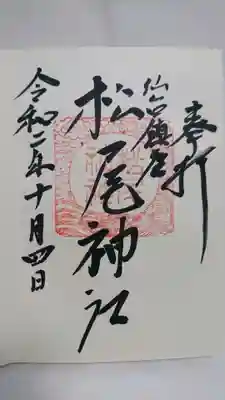 奉拝
仙宮鎮座
松尾神社
令和二年十月四日